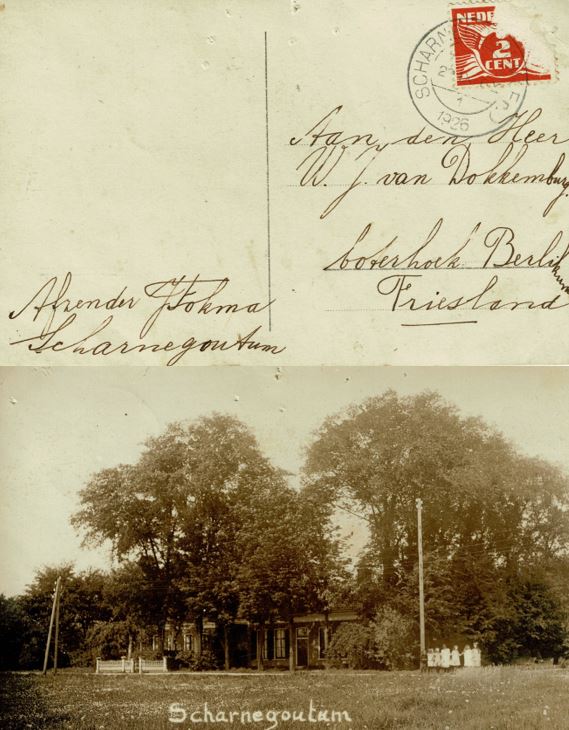 NEDE
2
CENT
SCHARN
1926
Aan den Heer
W. J. van Dokkemburg
boterhoek Berlikum
Friesland
Afzender J Fokma
Scharnegoutum
Scharnegoutum